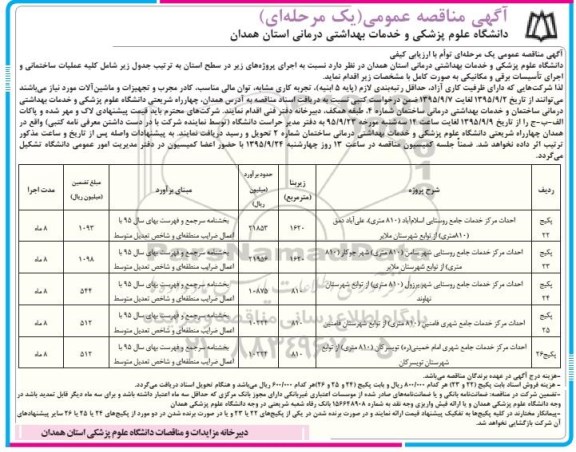 آگهی مناقصه عمومی(یک مرحله‌ای)
دانشگاه علوم پزشکی و خدمات بهداشتی درمانی استان همدان
آگهی مناقصه عمومی یک مرحله‌ای توأم با ارزیابی کیفی
دانشگاه علوم پزشکی و خدمات بهداشتی درمانی استان همدان در نظر دارد نسبت به اجرای پروژه‌های زیر در سطح استان به ترتیب جدول زیر شامل کلیه عملیات ساختمانی و
اجرای تأسیسات برقی و مکانیکی به صورت کامل با مشخصات زیر اقدام نماید.
لذا شرکت‌هایی که دارای ظرفیت کاری آزاد، حداقل رتبه‌بندی لازم (پایه ۵ ابنیه)، تجربه کاری مشابه، توان مالی مناسب، کادر مجرب و تجهیزات و ماشین‌آلات مورد نیاز می‌باشند
می‌توانند از تاریخ ۱۳۹۵/۹/۲ لغایت ۱۳۹۵/۹/۷ ضمن درخواست کتبی نسبت به دریافت اسناد مناقصه به آدرس همدان، چهارراه شریعتی دانشگاه علوم پزشکی و خدمات بهداشتی
درمانی ساختمان و خدمات بهداشتی درمانی ساختمان شماره ۴، طبقه همکف، دبیرخانه دفتر فنی اقدام نمایند. شرکت‌های محترم باید قیمت پیشنهادی لاک و مهر شده و پاکات
الف-ب-ج را از تاریخ ۱۳۹۵/۹/۹ لغایت ساعت ۱۲ سه‌شنبه مورخه ۹۵/۹/۲۳ به دفتر مدیر حراست دانشگاه (توسط نماینده شرکت با در دست داشتن معرفی نامه کتبی) واقع در
همدان چهارراه شریعتی دانشگاه علوم پزشکی و خدمات بهداشتی درمانی ساختمان شماره ۲ تحویل و رسید دریافت نمایند. به پیشنهادات واصله پس از تاریخ و ساعت مذکور
ترتیب اثر داده نخواهد شد. ضمناً جلسه کمیسیون مناقصه در ساعت ۱۳ روز چهارشنبه ۱۳۹۵/۹/۲۴ با حضور اعضا کمیسیون در دفتر مدیریت امور عمومی دانشگاه تشکیل
می‌گردد.
ردیف شرح پروژه زیربنا (مترمربع) حدود برآورد (میلیون ریال) مبنای برآورد مبلغ تضمین (میلیون ریال) مدت اجرا
پکیج ۲۲ احداث مرکز خدمات جامع روستایی اسلام‌آباد (۸۱۰ متری)، علی‌آباد دمق (۸۱۰متری) از توابع شهرستان ملایر ۱۶۲۰ ۲۱۸۵۳ بخشنامه سرجمع و فهرست بهای سال ۹۵ با اعمال ضرایب منطقه‌ای و شاخص تعدیل متوسط ۱۰۹۳ ۸ ماه
پکیج ۲۳ احداث مرکز خدمات جامع روستایی شهر سامن (۸۱۰ متری) شهر جوکار (۸۱۰ متری) از توابع شهرستان ملایر ۱۶۲۰ ۲۱۹۵۶ بخشنامه سرجمع و فهرست بهای سال ۹۵ با اعمال ضرایب منطقه‌ای و شاخص تعدیل متوسط ۱۰۹۸ ۸ ماه
پکیج ۲۴ احداث مرکز خدمات جامع روستایی شهر برزول (۸۱۰ متری) از توابع شهرستان نهاوند ۸۱۰ ۱۰۸۷۵ بخشنامه سرجمع و فهرست بهای سال ۹۵ با اعمال ضرایب منطقه‌ای و شاخص تعدیل متوسط ۵۴۴ ۸ ماه
پکیج ۲۵ احداث مرکز خدمات جامع شهری فامنین (۸۱۰ متری) از توابع شهرستان فامنین ۸۱۰ ۱۰۲۲۴ بخشنامه سرجمع و فهرست بهای سال ۹۵ با اعمال ضرایب منطقه‌ای و شاخص تعدیل متوسط ۵۱۲ ۸ ماه
پکیج۲۶ احداث مرکز خدمات جامع شهری امام خمینی(ره) تویسرکان (۸۱۰ متری) از توابع شهرستان تویسرکان ۸۱۰ ۱۰۲۲۴ بخشنامه سرجمع و فهرست بهای سال ۹۵ با اعمال ضرایب منطقه‌ای و شاخص تعدیل متوسط ۵۱۲ ۸ ماه
-هزینه درج آگهی در عهده برندگان مناقصه می‌باشد.
- هزینه فروش اسناد بابت پکیج (۲۲ و ۲۳) هر کدام ۸۰۰/۰۰۰ ریال و بابت پکیج (۲۴ و ۲۵ و ۲۶)هر کدام ۶۰۰/۰۰۰ ریال می‌باشد و هنگام تحویل اسناد دریافت می‌گردد.
-تضمین شرکت در مناقصه: ضمانت‌نامه بانکی و یا ضمانت‌نامه‌های صادر شده از موسسات اعتباری غیربانکی دارای مجوز بانک مرکزی که حداقل سه ماه اعتبار داشته باشد و برای سه ماه دیگر قابل تمدید باشد در
وجه دانشگاه علوم پزشکی همدان و یا ارائه فیش واریزی وجه نقد به شماره ۱۵۶۶۲۸۹۰۸ بانک رفاه شعبه شریعتی در وجه دانشگاه علوم پزشکی همدان
-پیمانکار مختارند در کلیه پکیج‌ها به تفکیک پیشنهاد قیمت ارائه نمایند و در صورت برنده شدن در یکی از پکیج‌های ۲۲ یا ۲۳ و یا در صورت برنده شدن در دو مورد از پکیج‌های ۲۴ یا ۲۵ یا ۲۶ سایر پیشنهادهای
آن شرکت بازگشایی نخواهد شد.
دبیرخانه مزایدات و مناقصات دانشگاه علوم پزشکی استان همدان